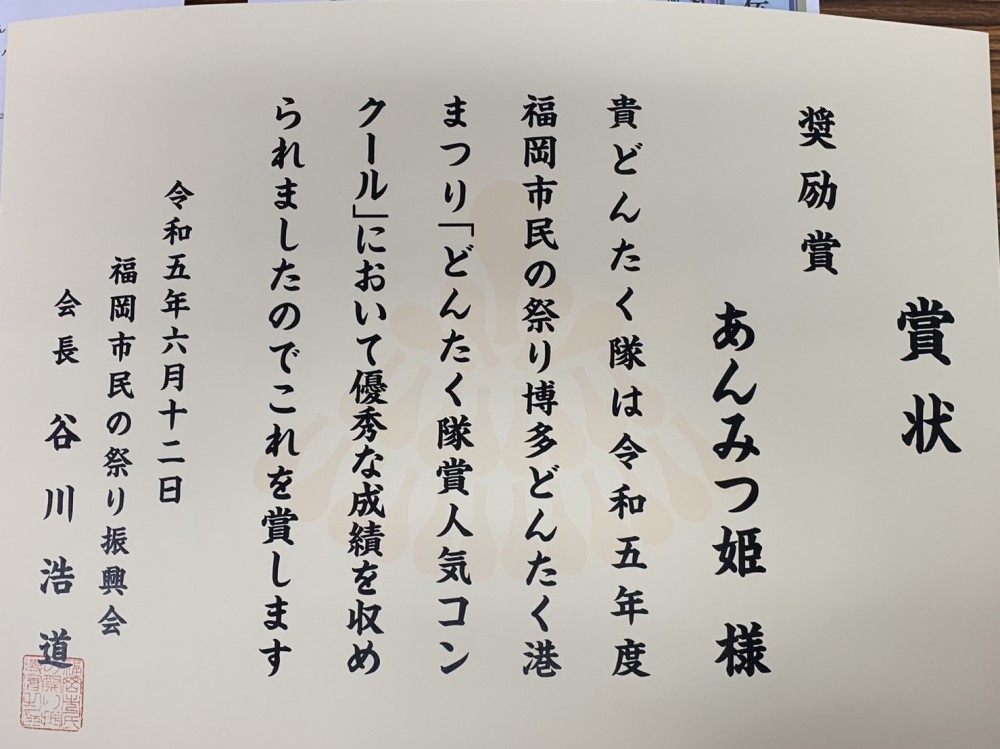 賞状
奨励賞
あんみつ姫 様
貴どんたく隊は令和五年度
福岡市民の祭り博多どんたく港
まつり「どんたく隊賞人気コン
クール」において優秀な成績を収め
られましたのでこれを賞します
令和五年六月十二日
福岡市民の祭り振興会
会長 谷川浩道